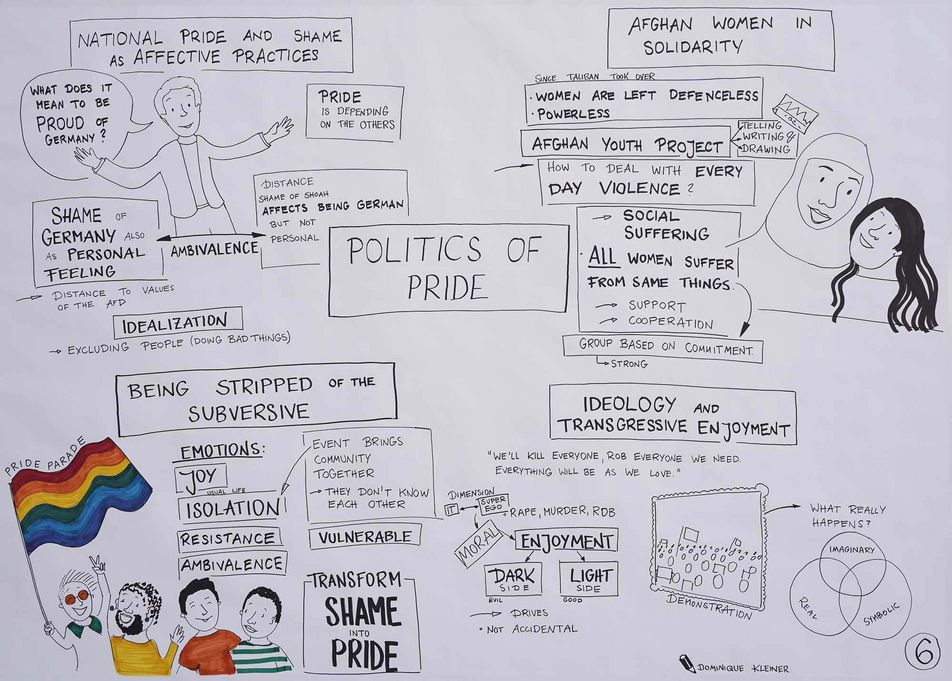 NATIONAL PRIDE AND SHAME
AS AFFECTIVE PRACTICES
WHAT DOES IT
MEAN TO BE
PROUD OF
GERMANY?
PRIDE
IS DEPENDING
ON THE OTHERS
DISTANCE
SHAME OF SHOAH
AFFECTS BEING GERMAN
BUT NOT
PERSONAL
SHAME OF
GERMANY ALSO
AS PERSONAL
FEELING
AMBIVALENCE
→ DISTANCE TO VALUES
OF THE AFD
IDEALIZATION
→ EXCLUDING PEOPLE (DOING BAD THINGS)
POLITICS OF
PRIDE
AFGHAN WOMEN IN
SOLIDARITY
SINCE TALIBAN TOOK OVER
· WOMEN ARE LEFT DEFENCELESS
· POWERLESS
AFGHAN YOUTH PROJECT
TELLING
WRITING &
DRAWING
HOW TO DEAL WITH EVERY
DAY VIOLENCE?
→ SOCIAL
SUFFERING
· ALL WOMEN SUFFER
FROM SAME THINGS.
→ SUPPORT
→ COOPERATION
GROUP BASED ON COMMITMENT.
→ STRONG
BEING STRIPPED OF THE
SUBVERSIVE
PRIDE PARADE
EMOTIONS:
JOY
USUAL LIFE
ISOLATION
RESISTANCE
AMBIVALENCE
EVENT BRINGS
COMMUNITY
TOGETHER
→ THEY DON'T KNOW
EACH OTHER
VULNERABLE
TRANSFORM
SHAME
INTO
PRIDE
IDEOLOGY AND
TRANSGRESSIVE ENJOYMENT
"WE'LL KILL EVERYONE, ROB EVERYONE WE NEED.
EVERYTHING WILL BE AS WE LOVE."
DIMENSION
IT
SUPER
EGO
· RAPE, MURDER, ROB
MORAL
ENJOYMENT
DARK
SIDE
EVIL
LIGHT
SIDE
GOOD
→ DRIVES
· NOT ACCIDENTAL
DEMONSTRATION
→ WHAT REALLY
HAPPENS?
IMAGINARY
REAL
SYMBOLIC
DOMINIQUE KLEINER
6